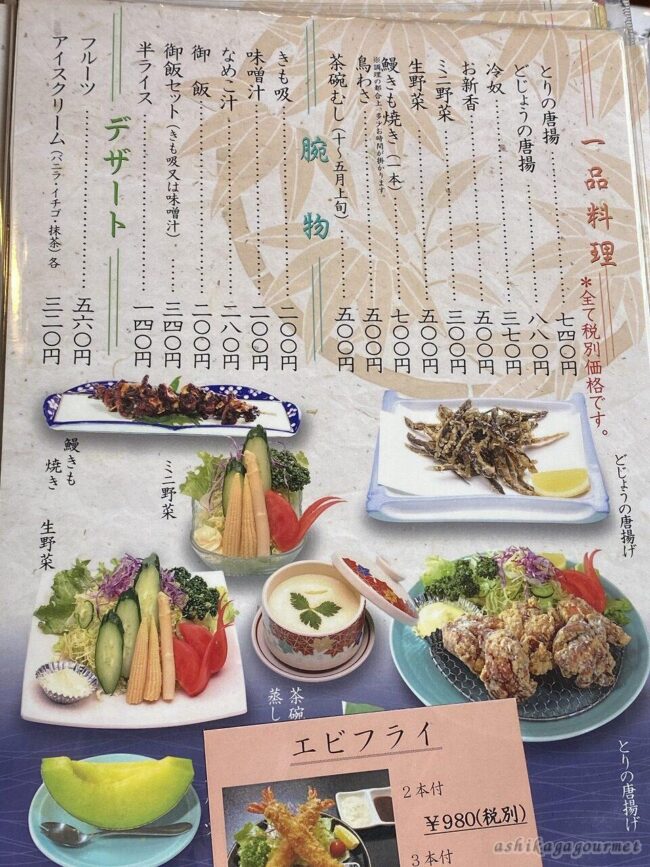 一品料理
＊全て税別価格です。
とりの唐揚…………七四〇円
どじょうの唐揚…………八八〇円
冷奴…………三七〇円
お新香…………五〇〇円
ミニ野菜…………三〇〇円
生野菜…………五〇〇円
鰻きも焼き(一本)…………七〇〇円
※調理の都合上、多少お時間が掛かります。
鳥わさ…………五〇〇円
茶碗むし(十〜五月上旬)…………五〇〇円
腕物
きも吸…………二〇〇円
味噌汁…………二〇〇円
なめこ汁…………二八〇円
御飯…………二〇〇円
御飯セット(きも吸又は味噌汁)…………三四〇円
半ライス…………一四〇円
デザート
フルーツ…………五六〇円
アイスクリーム(バニラ・イチゴ 抹茶)各 三二〇円
鰻きも
焼き
ミニ野菜
どじょうの唐揚げ
生野菜
茶碗
蒸し
とりの唐揚げ
エビフライ
2本付
¥980(税別)
3本付
ashikagagourmet